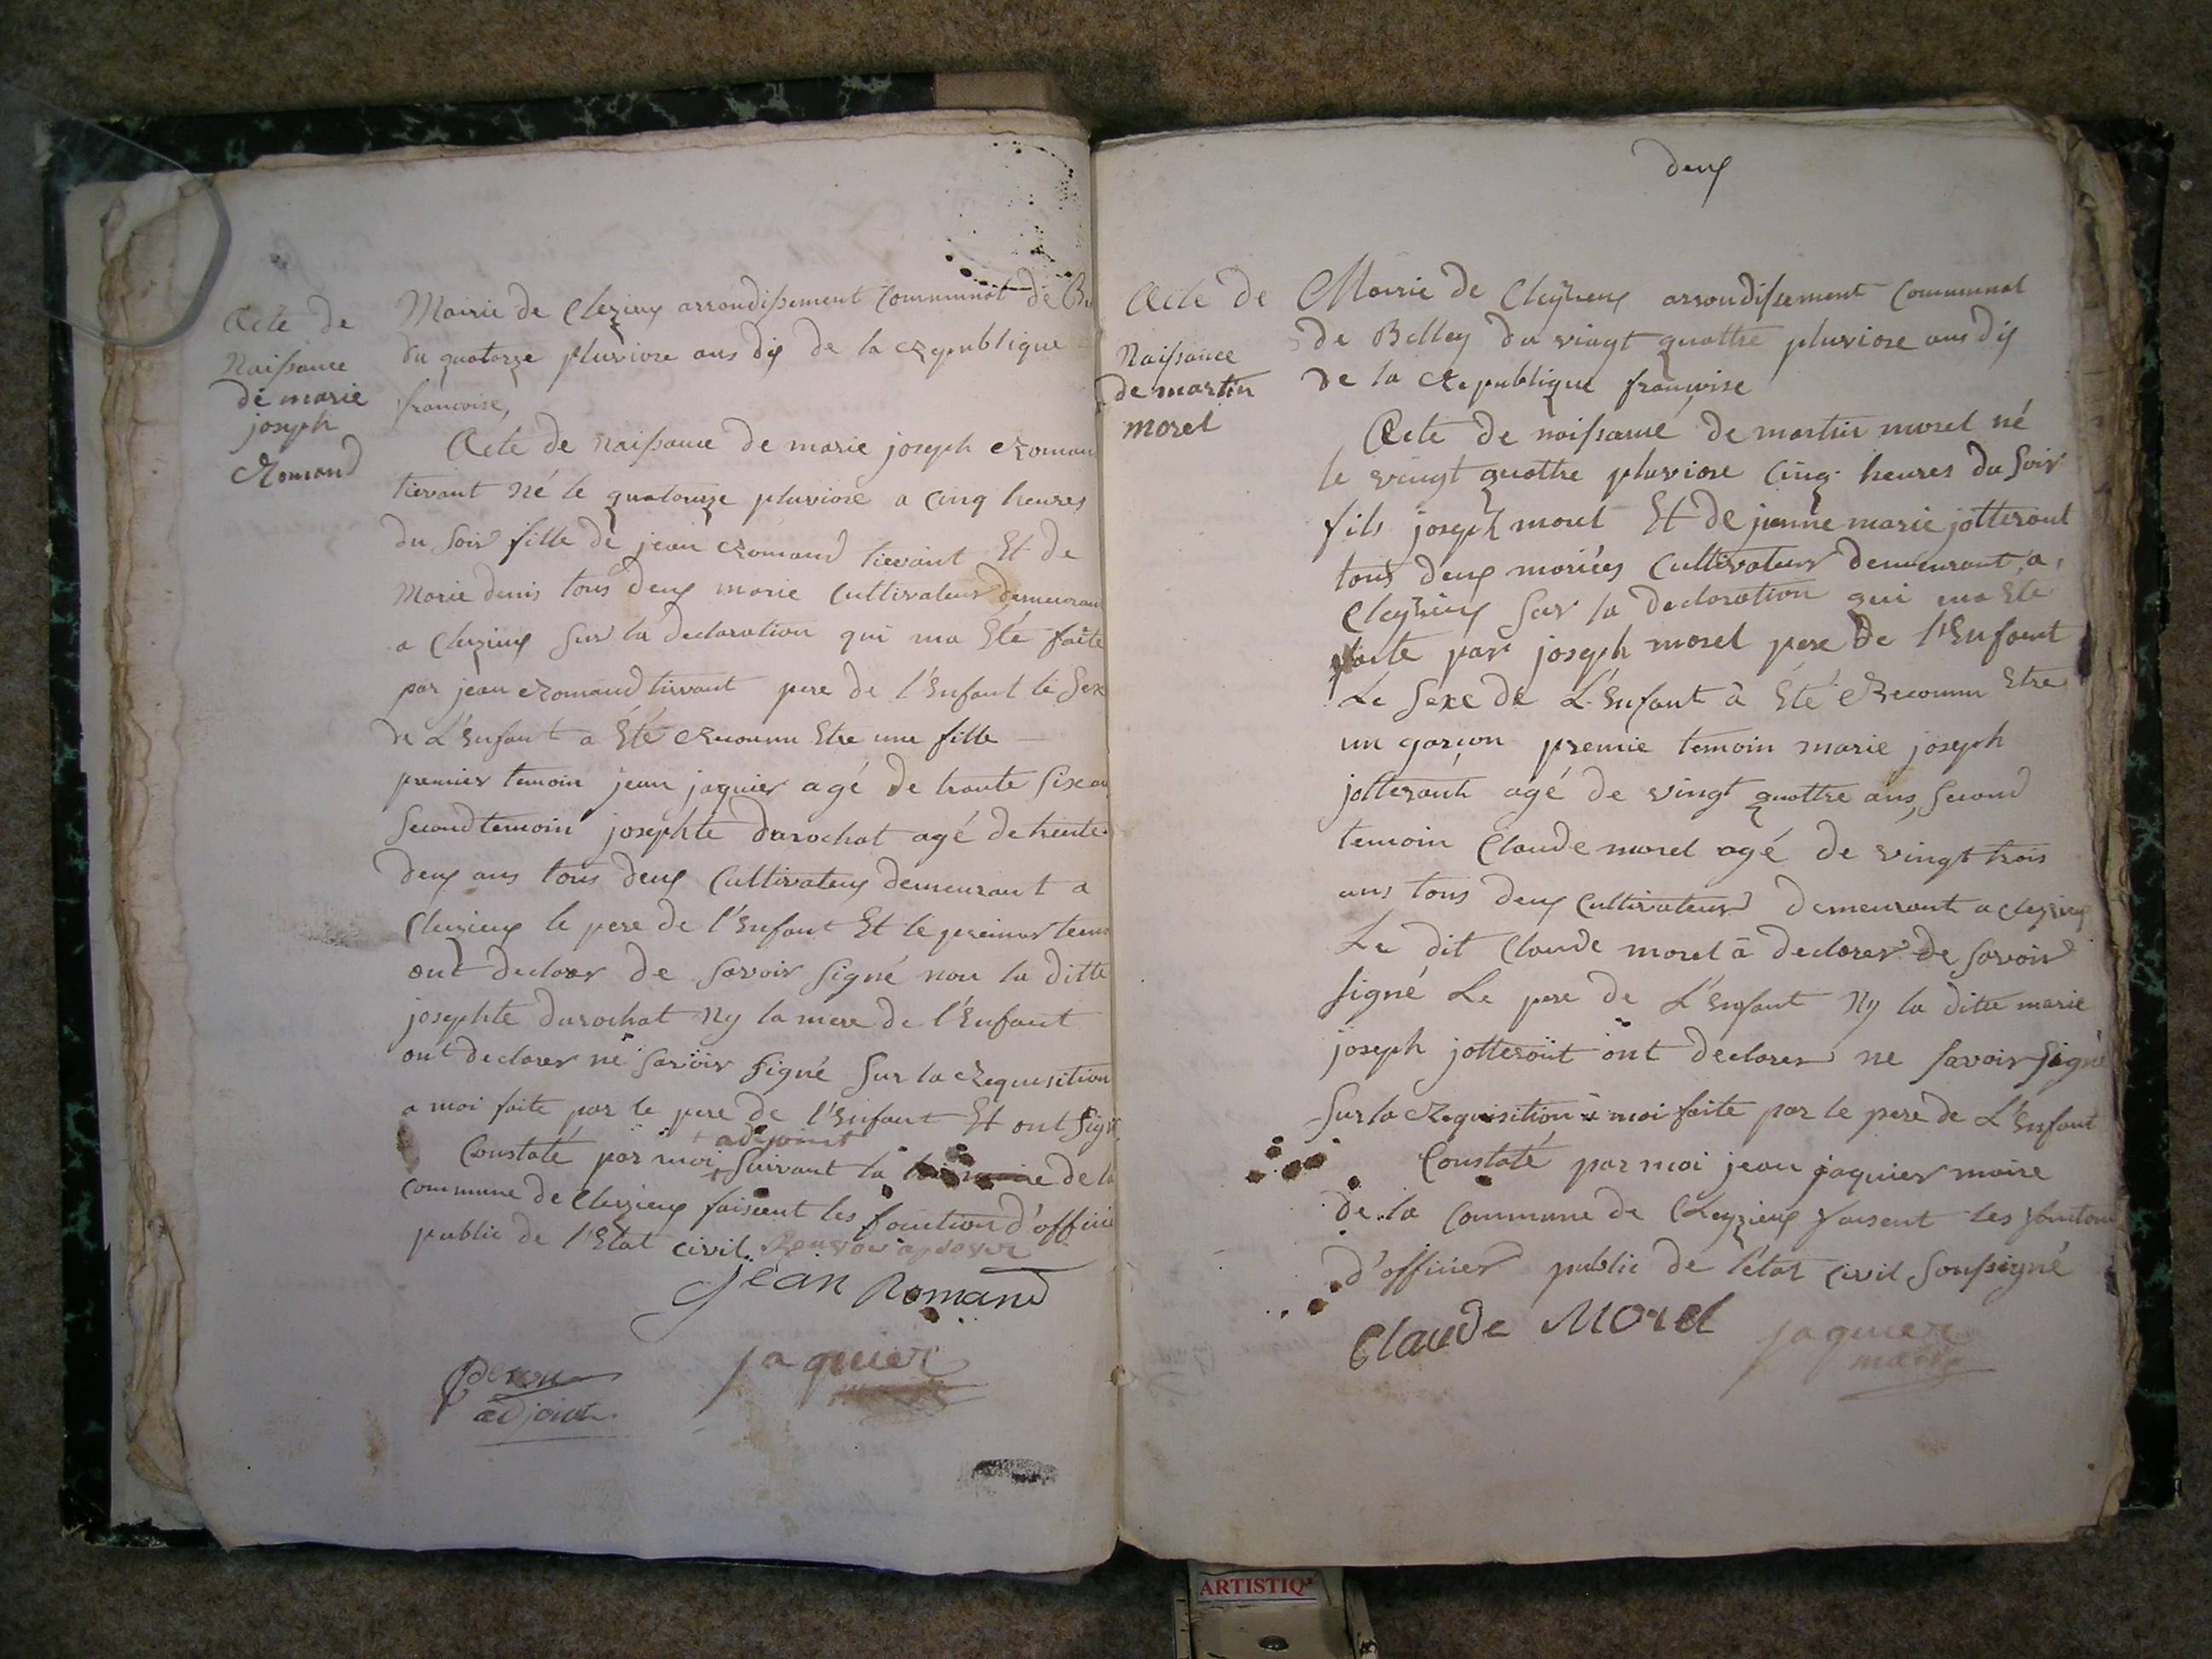 Acte de
Naissance
de marie
joseph
Romand
Mairie de Clezieux arrondissement Communal de
du quatorze pluviose ans dix de la republique
francoise,
Acte de naissance de marie joseph Roman
tievant né le quatorze pluviose a cinq heures
du soir fille de jean Romand tievant Et de
Marie denis tous deux marie Cultivateur demeuran
a Cleyzieux sur la declaration qui ma Eté faite
par jean Romand tievant pere de l'Enfant le sex
de L'Enfant a Eté reconnu Etre une fille
premier temoin jean jaquier agé de trante six an
second temoin josephte durochat agé de trente
deux ans tous deux Cultivateux demeurant a
Cleyzieux le pere de l'Enfant Et le premier tem
ont declarer de savoir signé non la ditte
josephte durochat ny la mere de l'Enfant
ont declarer ne savoir signé sur la requisition
a moi faite par le pere de l'Enfant Et ont signé
+ adjoint
Constaté par moi + suivant la de la
commune de Cleyzieux faisant les fonction d'officie
public de l'Etat civil. Renvoi aprover
jean Romand
jaquier
adjoint
deux
Acte de
Naissance
de martin
morel
Mairie de Cleyzieux arrondissement Communal
de Belley du vingt quattre pluviose ans dix
de la Republique francoise
Acte de naissance de martin morel né
le vingt quattre pluviose cinq heures du soir
fils joseph morel Et de jeanne marie jotterant
tous deux mariées Cultivateur demeurant a
Cleyzieux sur la declaration qui ma Eté
faite par joseph morel pere de l'Enfant
Le sexe de L'Enfant à Eté Reconnu Etre
un garçon premie temoin marie joseph
jotterant agé de vingt quattre ans, second
temoin Claude morel agé de vingt trois
ans tous deux Cultivateur demeurant a Cleyzieux
Le dit Claude morel à declarer de savoir
signé Le pere de L'Enfant Ny la ditte marie
joseph jotteront ont declarer ne savoir signé
Sur la Requisition à moi faite par le pere de L'Enfant
Constaté par moi jean jaquier maire
de la Commune de Cleyzieux faisent les fontion
d'officier public de l'état civil soussigné
Claude Morel
jaquier
maire
ARTISTIQ